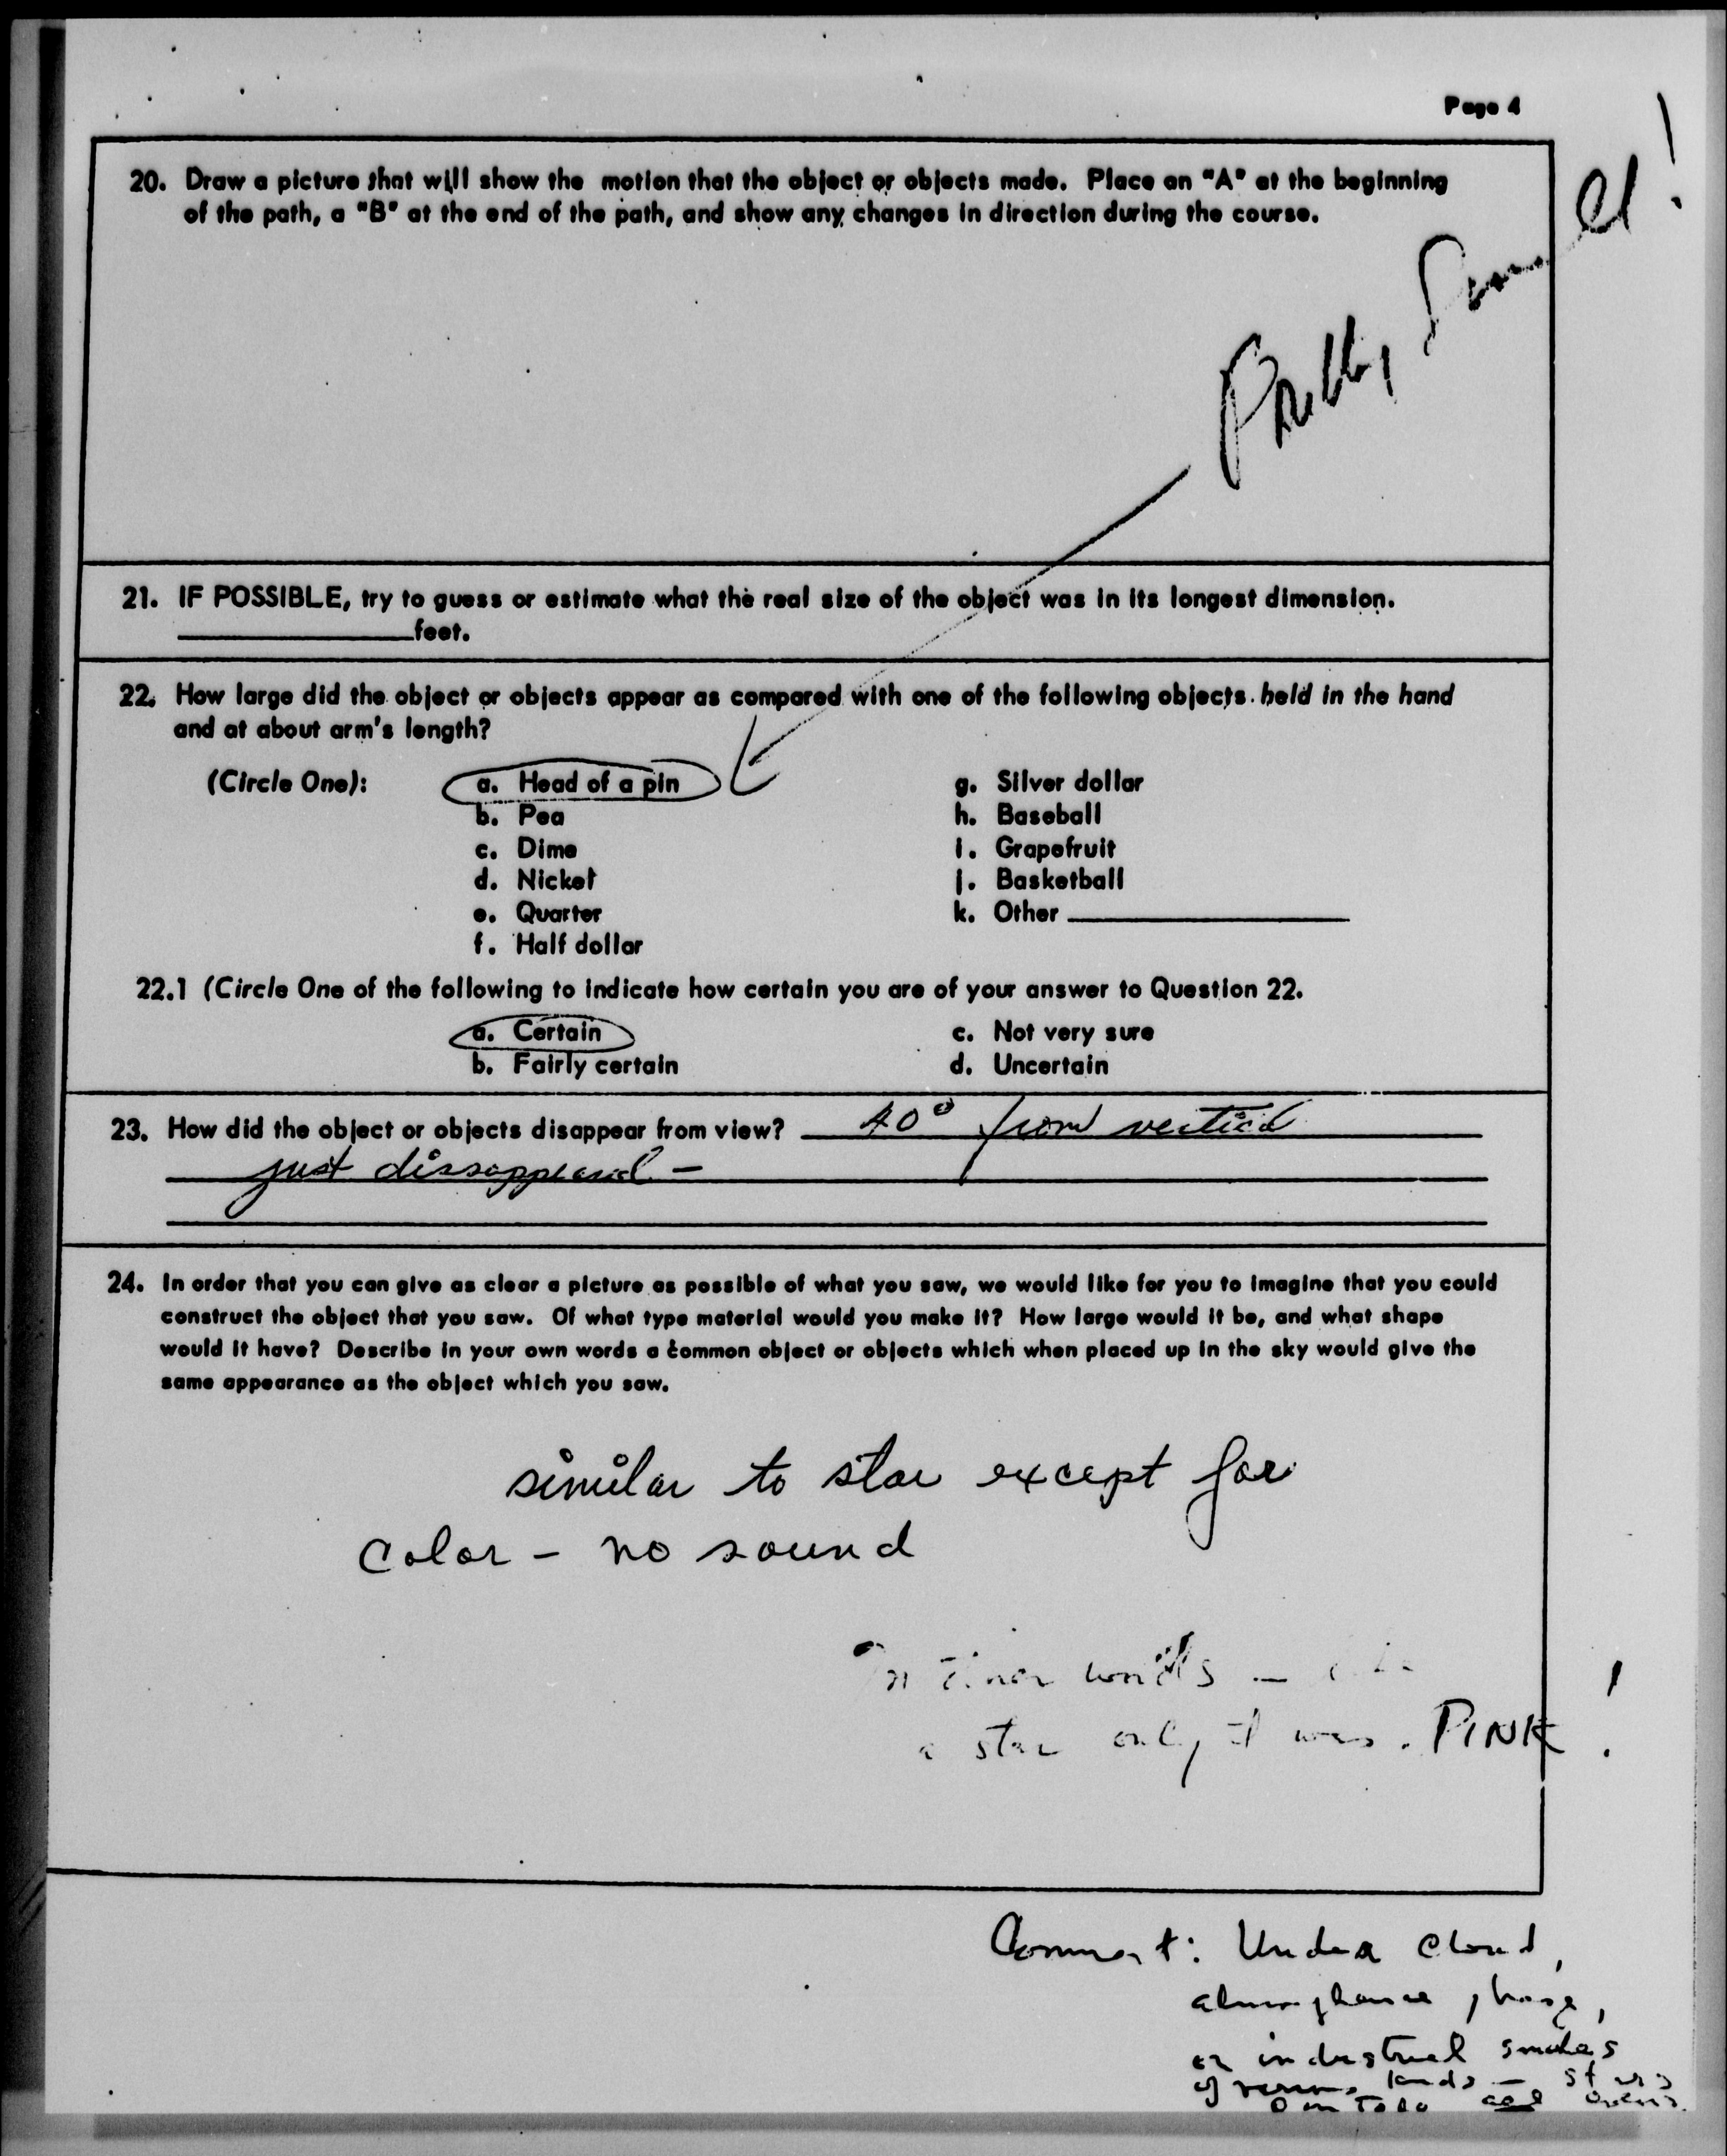 Page 4
20. Draw a picture that will show the motion that the object or objects made. Place an "A" at the beginning
of the path, a "B" at the end of the path, and show any changes in direction during the course.
21. IF POSSIBLE, try to guess or estimate what the real size of the object was in its longest dimension.
feet.
22. How large did the object or objects appear as compared with one of the following objects held in the hand
and at about arm's length?
(Circle One): a. Head of a pin g. Silver dollar
b. Pea h. Baseball
c. Dime i. Grapefruit
d. Nickel j. Basketball
e. Quarter k. Other
f. Half dollar
22.1 (Circle One of the following to indicate how certain you are of your answer to Question 22.
a. Certain c. Not very sure
b. Fairly certain d. Uncertain
23. How did the object or objects disappear from view? 40° from vertical
just dissappeared -
24. In order that you can give as clear a picture as possible of what you saw, we would like for you to imagine that you could
construct the object that you saw. Of what type material would you make it? How large would it be, and what shape
would it have? Describe in your own words a common object or objects which when placed up in the sky would give the
same appearance as the object which you saw.
similar to star except for
color - no sound
words -
a star only it was PINK !
Comment: Under cloud,
or industrial smokes